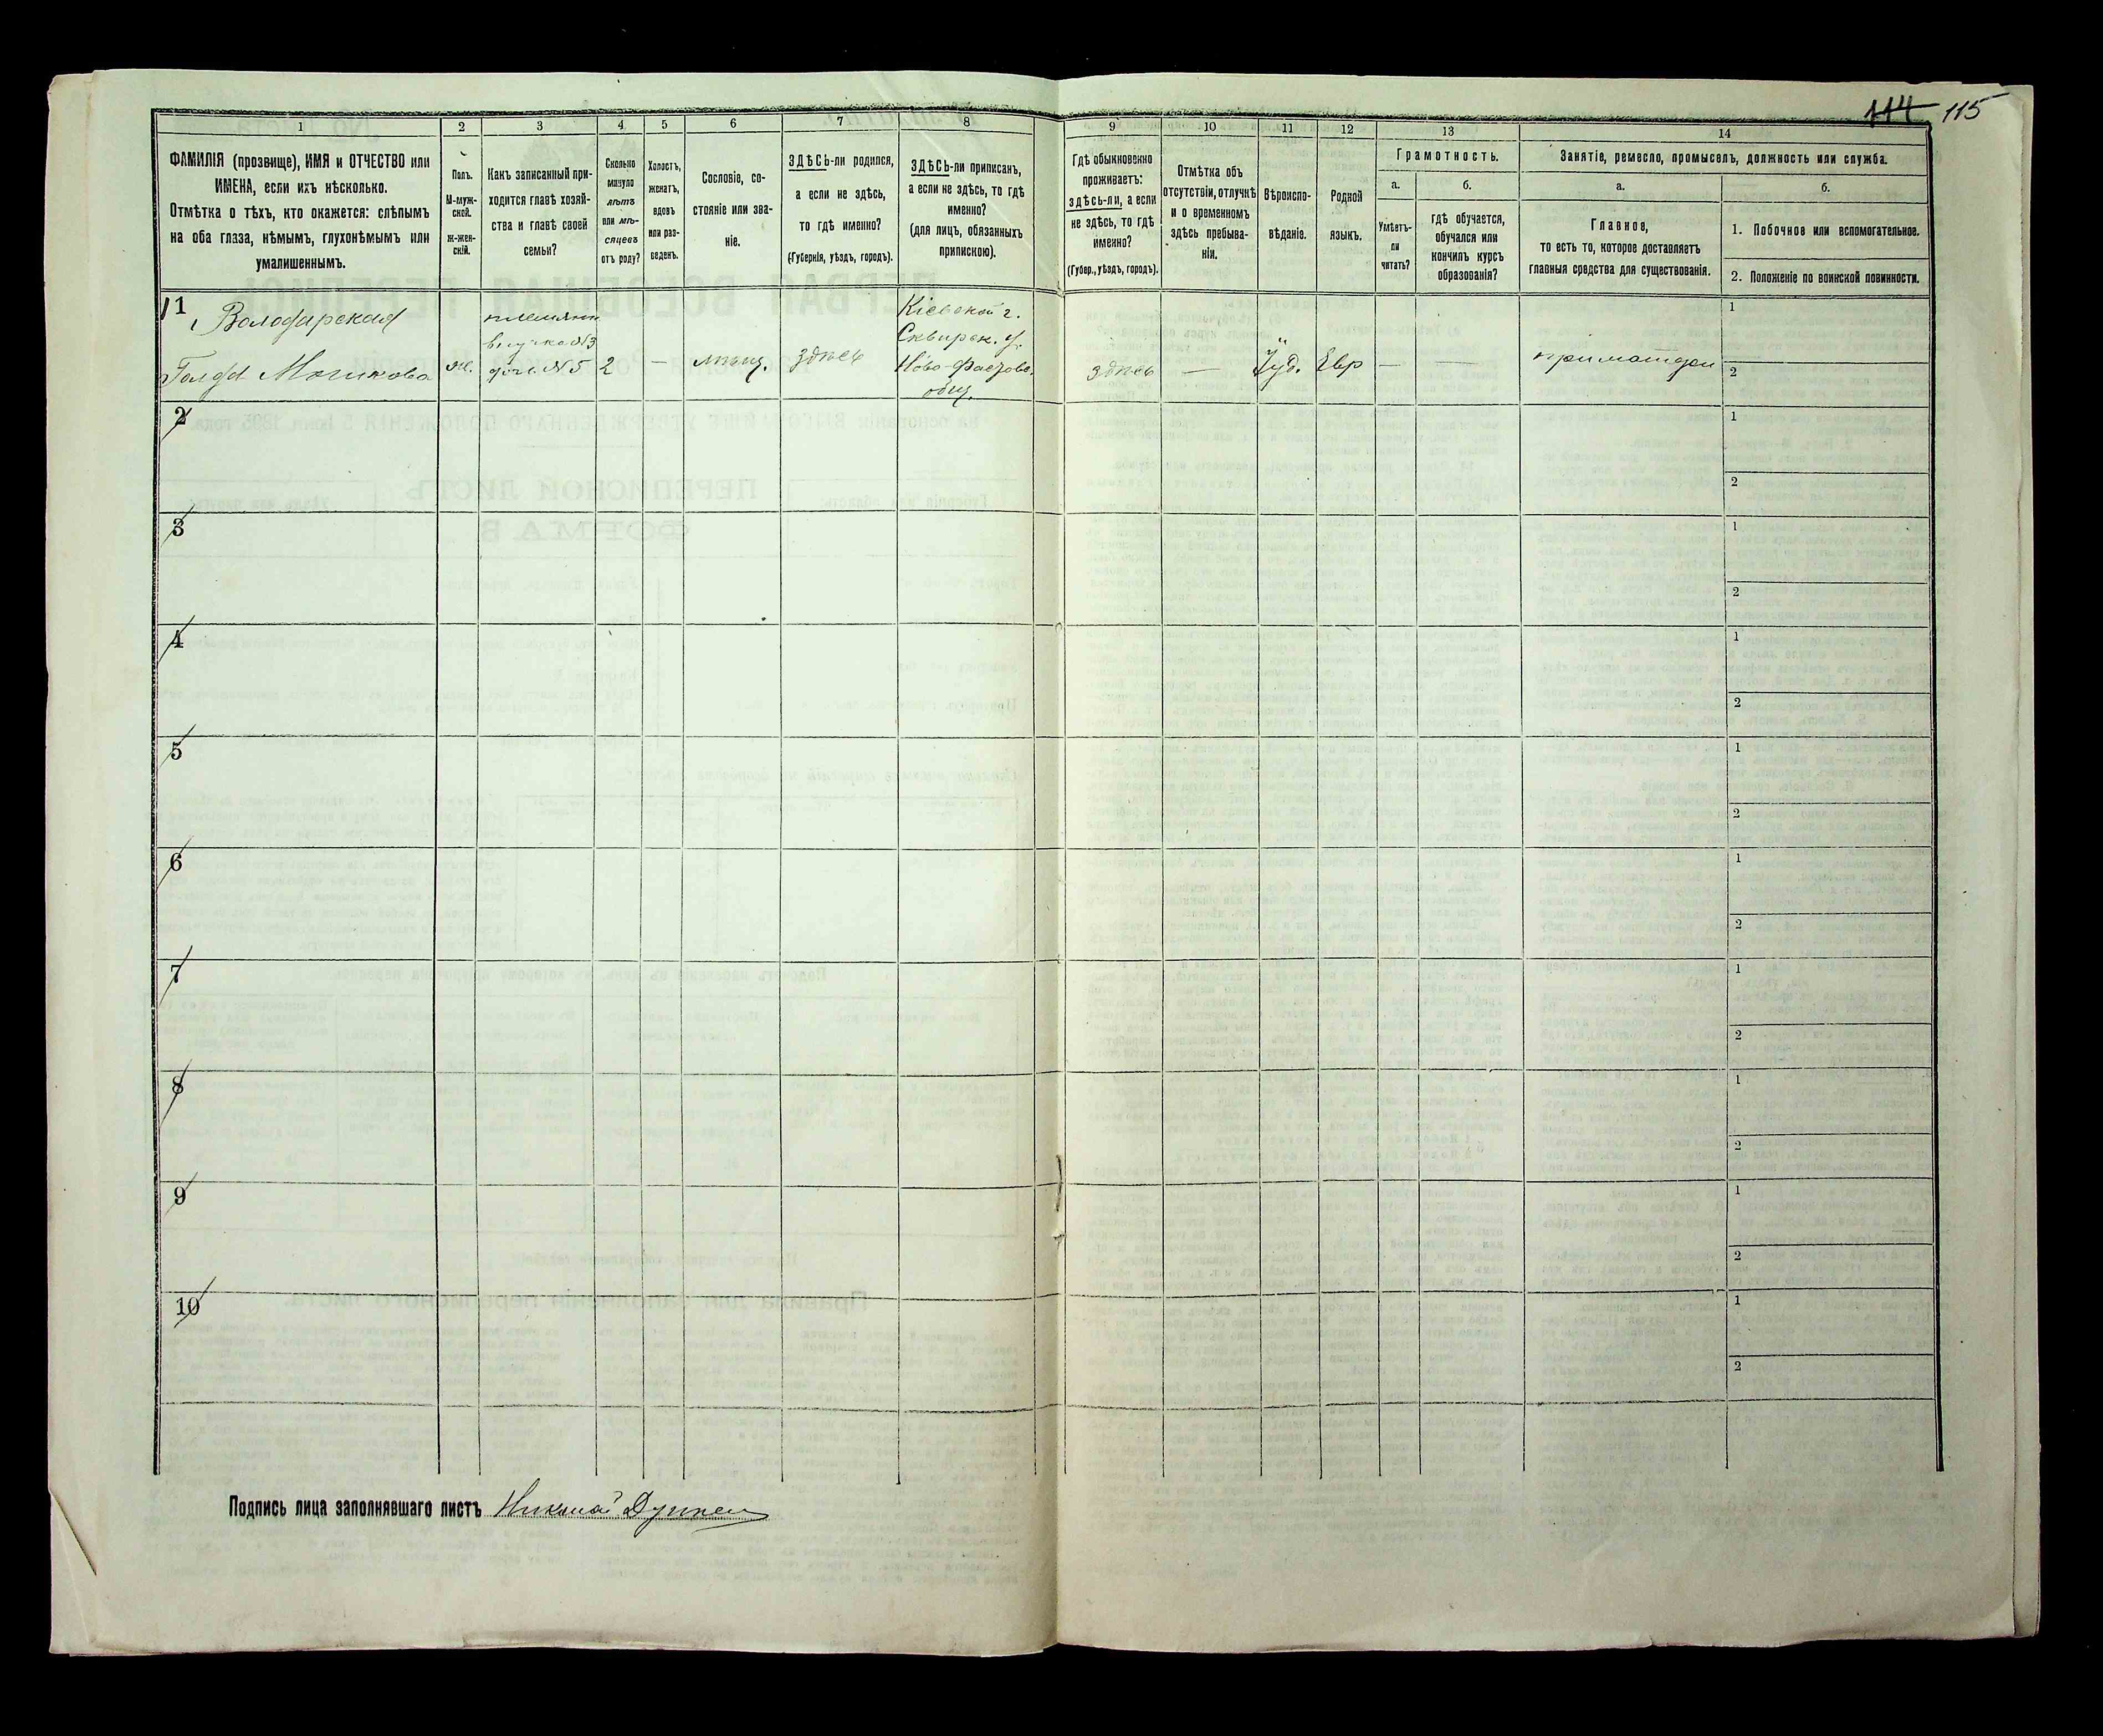 114 115
1 2 3 4 5 6 7 8 9 10 11 12 13 14
ФАМИЛІЯ (прозвище), ИМЯ и ОТЧЕСТВО или
ИМЕНА, если ихъ нѣсколько.
Отмѣтка о тѣхъ, кто окажется: слѣпымъ
на оба глаза, нѣмымъ, глухонѣмымъ или
умалишеннымъ.
Полъ.
М-муж-
ской.
ж-жен-
скій.
Какъ записанный при-
ходится главѣ хозяй-
ства и главѣ своей
семьи?
Сколько
минуло
лѣтъ
или мѣ-
сяцевъ
отъ роду?
Холостъ,
женатъ,
вдовъ
или раз-
веденъ.
Сословіе, со-
стояніе или зва-
ніе.
ЗДѢСЬ-ли родился,
а если не здѣсь,
то гдѣ именно?
(Губернія, уѣздъ, городъ).
ЗДѢСЬ-ли приписанъ,
а если не здѣсь, то гдѣ
именно?
(для лицъ, обязанныхъ
припискою).
Гдѣ обыкновенно
проживаетъ:
здѣсь-ли, а если
не здѣсь, то гдѣ
именно?
(Губер., уѣздъ, городъ).
Отмѣтка объ
отсутствіи, отлучкѣ
и о временномъ
здѣсь пребыва-
ніи.
Вѣроиспо-
вѣданіе.
Родной
языкъ.
Грамотность.
а.
Умѣетъ-
ли
читать?
б.
гдѣ обучается,
обучался или
кончилъ курсъ
образованія?
Занятіе, ремесло, промыселъ, должность или служба.
а.
Главное,
то есть то, которое доставляетъ
главныя средства для существованія.
б.
1. Побочное или вспомогательное.
2. Положеніе по воинской повинности.
1
Володарская
Голда Мошкова
ж.
дочь №5
2
—
мѣщ.
здѣсь
Кіевской г.
Сквирск. у.
Ново-Фастовс.
общ.
здѣсь
—
Іуд.
Евр
—
—
1
2
2
1
2
3
1
2
4
1
2
5
1
2
6
1
2
7
1
2
8
1
2
9
1
2
10
1
2
Подпись лица заполнявшаго листъ Николай